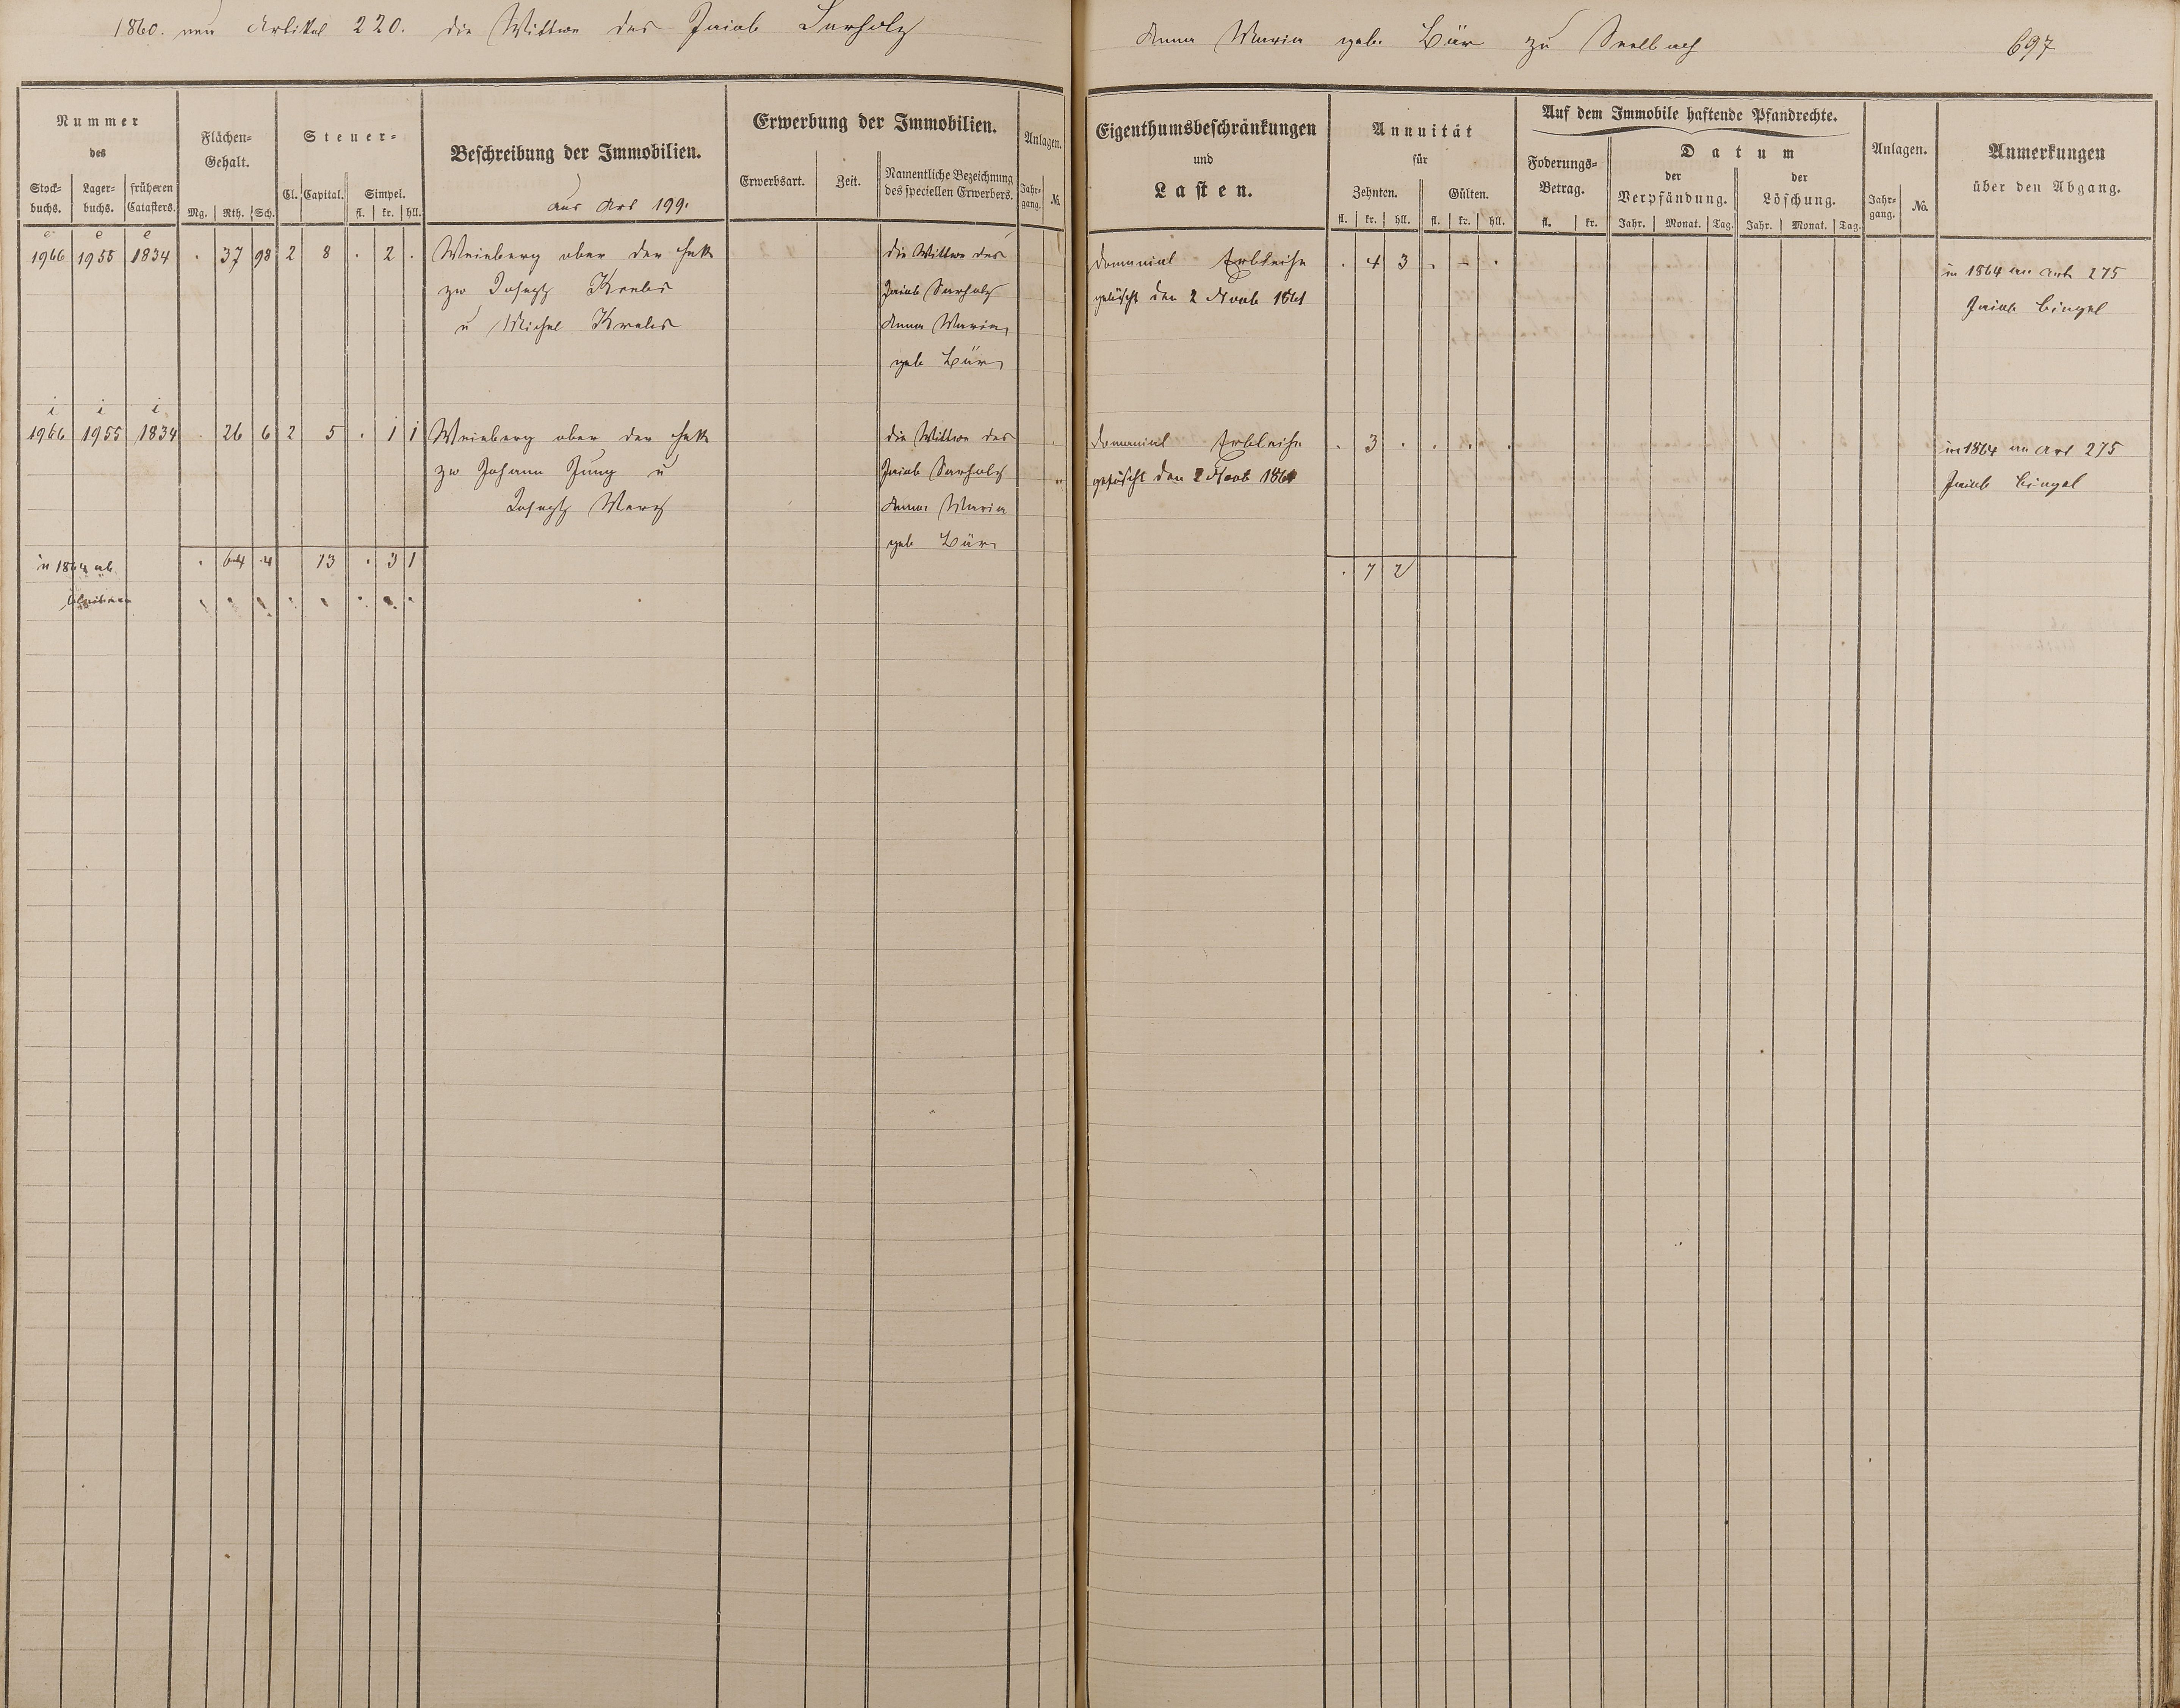 1860. neu Artikel 220. die Wittwe des Jacob Sarholz Anna Maria geb. Bär zu Seelbach 697
Nummer des
Stockbuchs. Lagerbuchs. früheren Catasters.
Flächen-Gehalt.
Mg. Rth. Sch.
Steuer-
Cl. Capital. Simpel.
fl. kr. hll.
Beschreibung der Immobilien.
aus Art 199.
Erwerbung der Immobilien.
Erwerbsart. Zeit. Namentliche Bezeichnung des speciellen Erwerbers.
Anlagen.
Jahrgang. No.
Eigenthumsbeschränkungen
und
Lasten.
Annuität
für
Zehnten. Gülten.
fl. kr. hll. fl. kr. hll.
Auf dem Immobile haftende Pfandrechte.
Foderungs-Betrag.
fl. kr.
Datum
der Verpfändung. der Löschung.
Jahr. Monat. Tag. Jahr. Monat. Tag.
Anlagen.
Jahrgang. No.
Anmerkungen
über den Abgang.
e e e
1966 1955 1834 . 37 98 2 8 . 2 . Weinberg ober der die Wittwe des domanial Erbleihe . 4 3 . - . in 1864 an Art 275
zw Joseph Krebs Jacob Sarholz gelöscht den 2 Novb 1861 Jacob Bingel
u Michel Krebs Anna Maria
geb Bär
i i i
1966 1955 1834 . 26 6 2 5 . 1 1 Weinberg ober der die Wittwe des domanial Erbleihe . 3 . . . . in 1864 an Art 275
zw Johann Jung u Jacob Sarholz gelöscht den 2 Novb 1861 Jacob Bingel
Joseph Anna Maria
geb Bär
in 1864 ab . 64 4 13 . 3 1 . 7 2
bleiben